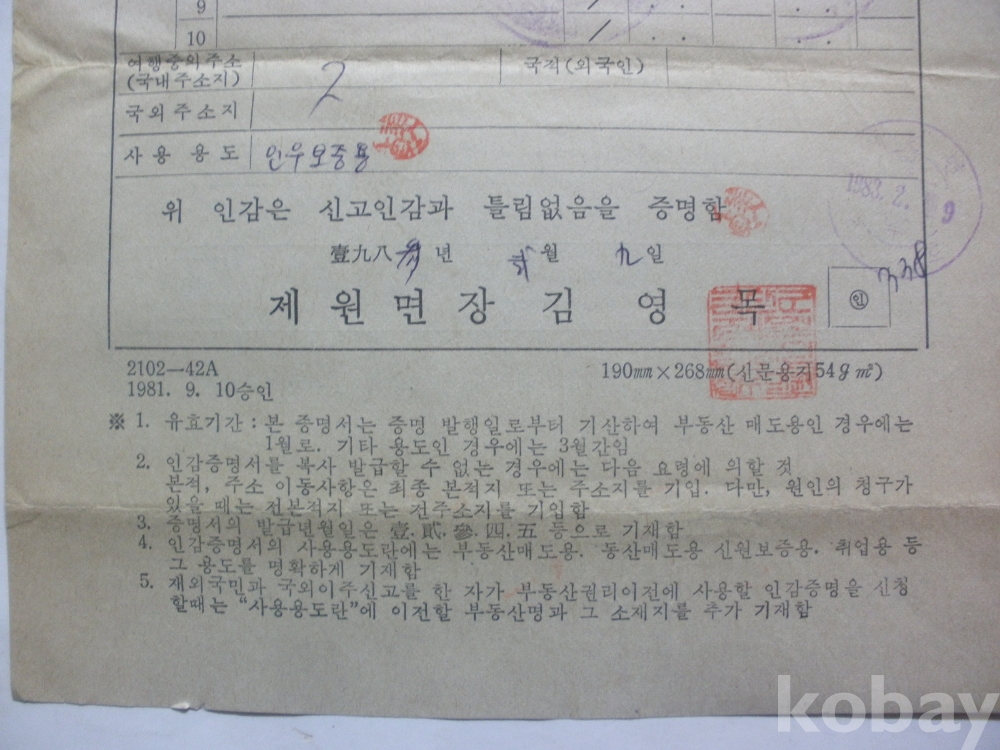 9
10
여행중의주소 국적(외국인)
(국내주소지) 2
국외주소지
사용 용도 인우보증용
위 인감은 신고인감과 틀림없음을 증명함
1983. 2. 9
壹九八 년 월 九 일
338
제원면장 김영목 ㊞
2102—42A 190㎜×268㎜(신문용지54g/㎡)
1981. 9. 10승인
※ 1. 유효기간 : 본 증명서는 증명 발행일로부터 기산하여 부동산 매도용인 경우에는
1월로. 기타 용도인 경우에는 3월간임
2. 인감증명서를 복사 발급할 수 없는 경우에는 다음 요령에 의할 것
본적, 주소 이동사항은 최종 본적지 또는 주소지를 기입. 다만, 원인의 청구가
있을 때는 전본적지 또는 전주소지를 기입함
3. 증명서의 발급년월일은 壹.貳.參.四.五 등으로 기재함
4. 인감증명서의 사용용도란에는 부동산매도용. 동산매도용 신원보증용. 취업용 등
그 용도를 명확하게 기재함
5. 재외국민과 국외이주신고를 한 자가 부동산권리이전에 사용할 인감증명을 신청
할때는 “사용용도란”에 이전할 부동산명과 그 소재지를 추가 기재함
kobay